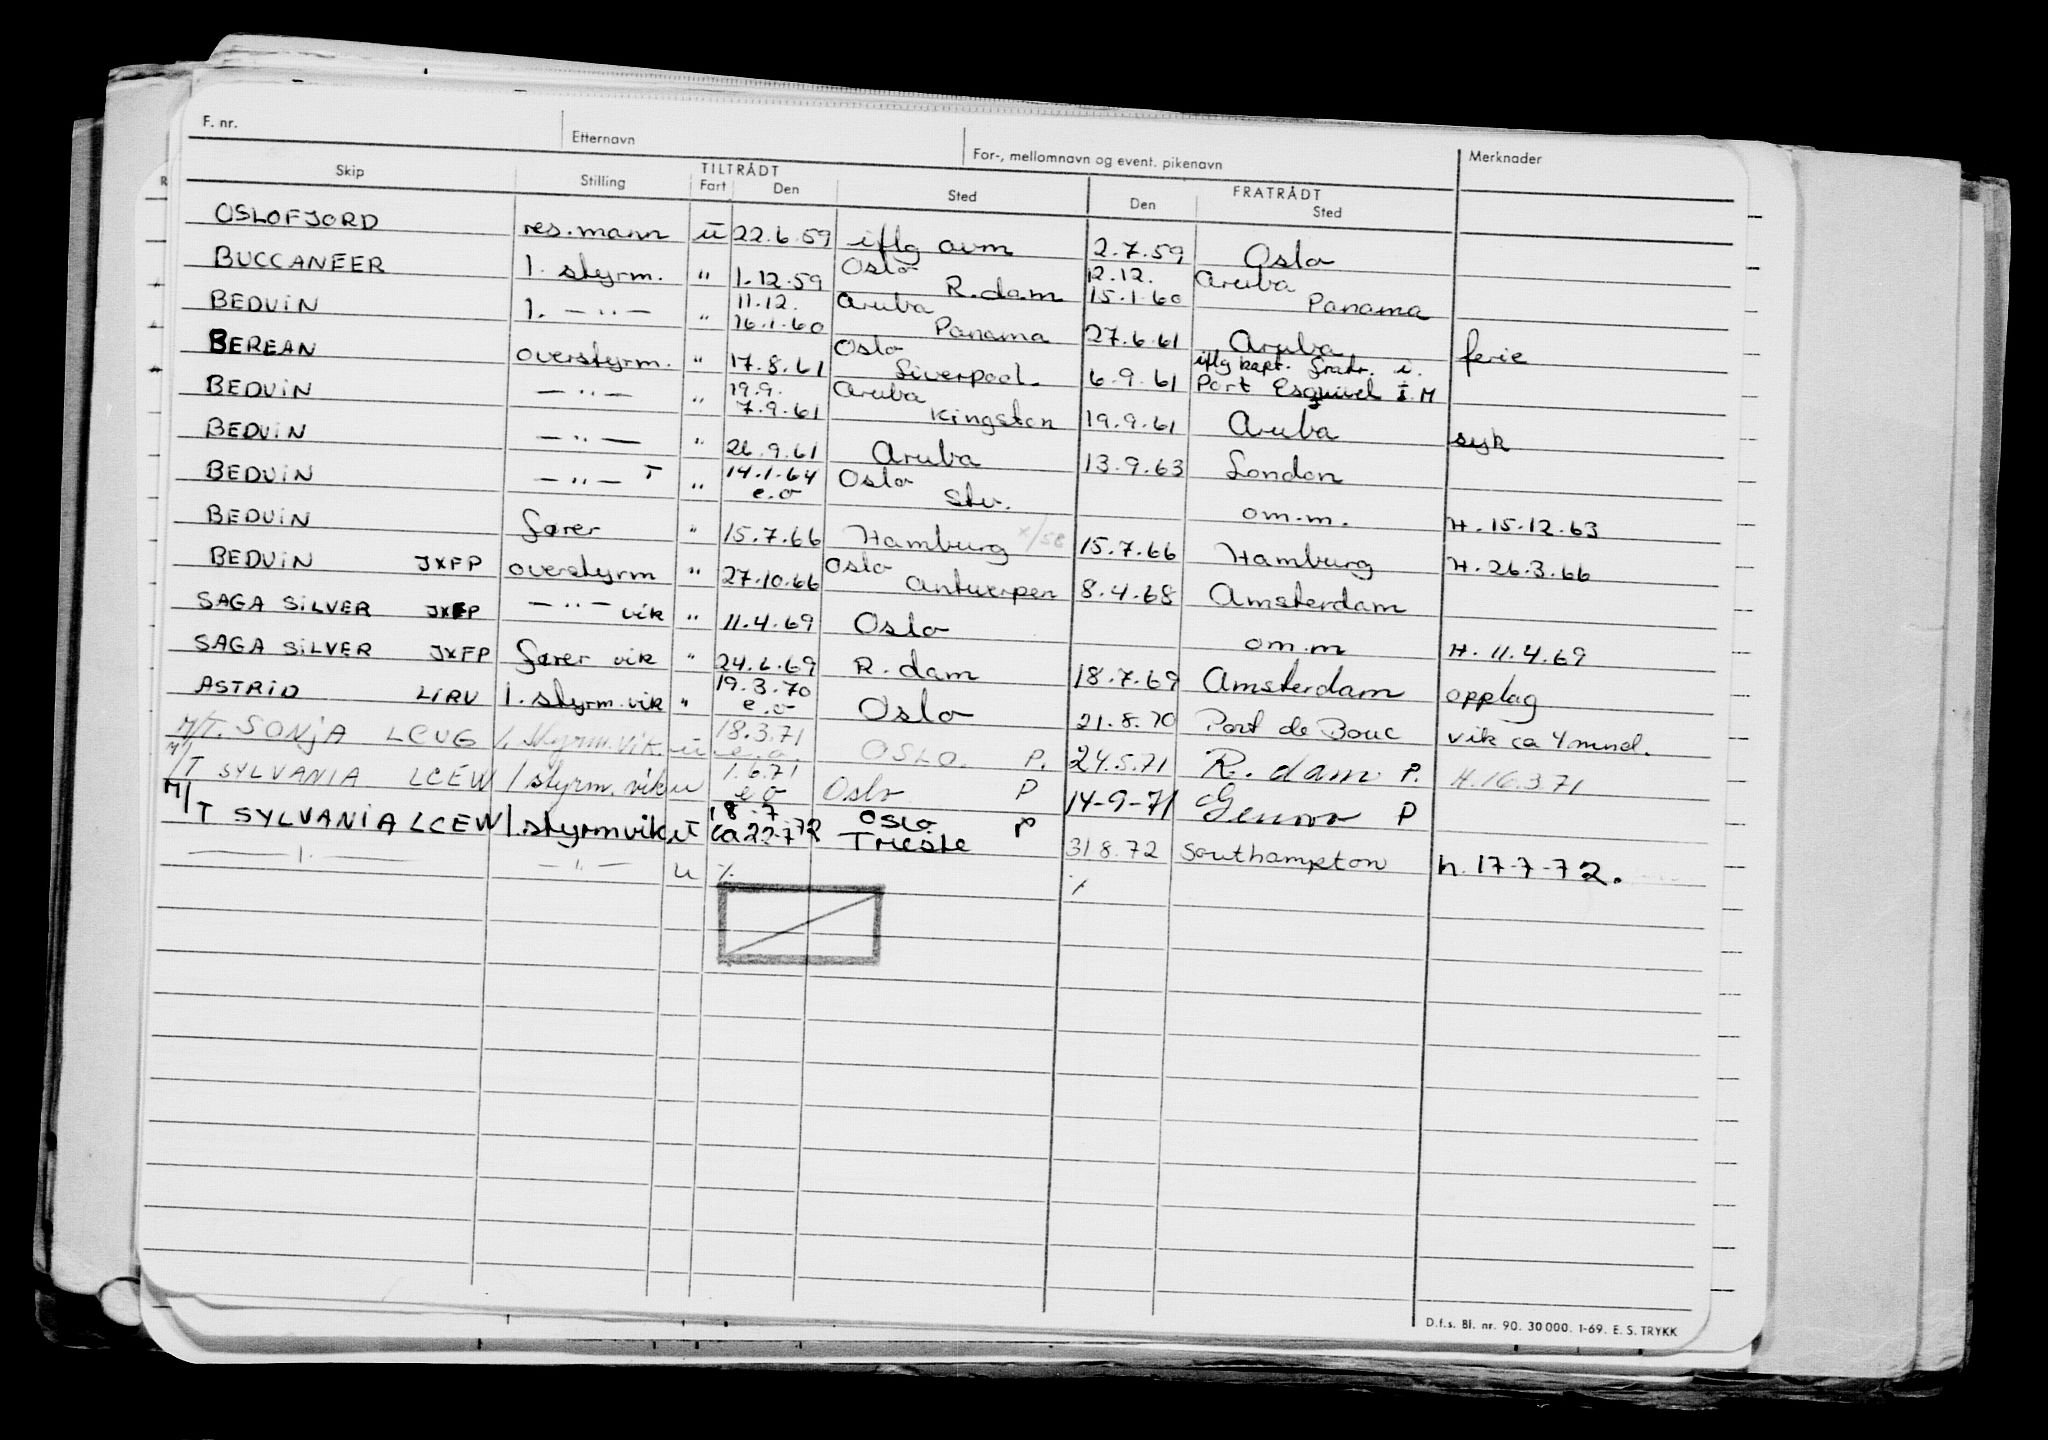 F. nr. Etternavn For-, mellomnavn og event. pikenavn Merknader
TILTRÅDT FRATRÅDT
Skip Stilling Fart Den Sted Den Sted
OSLOFJORD res.mann u 22.6.59 iflg avm 2.7.59 Oslo
BUCCANEER 1. styrm. " 1.12.59 Oslo R.dam 12.12. 15.1.60 Aruba Panama
BEDUIN 1. — " — " 11.12. 16.1.60 Aruba Panama 27.6.61 Aruba ferie
BEREAN overstyrm. " 17.8.61 Oslo Liverpool. 6.9.61 iflg kapt. fratr. i. Port Esquivel I.M
BEDUIN — " — " 19.9. 7.9.61 Aruba Kingston 19.9.61 Aruba syk
BEDUIN — " — " 26.9.61 Aruba 13.9.63 London
BEDUIN — " — T " 14.1.64 e.o Oslo stv. om.m. H. 15.12.63
BEDUIN fører " 15.7.66 Hamburg x/58 15.7.66 Hamburg H. 26.3.66
BEDUIN JXFP overstyrm " 27.10.66 Oslo Antwerpen 8.4.68 Amsterdam
SAGA SILVER JXFP — " — vik " 11.4.69 Oslo om.m H. 11.4.69
SAGA SILVER JXFP fører vik " 24.6.69 R.dam 18.7.69 Amsterdam opplag
ASTRID LIRV 1. styrm.vik " 19.3.70 e.o Oslo 21.8.70 Port de Bouc vik ca 4 mnd.
M/T. SONJA LCUG 1. styrm.vik. u 18.3.71 e.o. OSLO. P. 24.5.71 R.dam P. H.16.3.71
M/T SYLVANIA LCEW 1 styrm.vik u 1.6.71 e o Oslo P 14-9-71 Genova P
M/T SYLVANIA LCEW 1.styrmvik uT 18.7 ca 22.7.72 OSLO. P Trieste 31 8.72 Southampton h. 17-7-72.
— " — — " — u % %
D.f.s. Bl. nr. 90. 30 000. 1-69. E. S. TRYKK